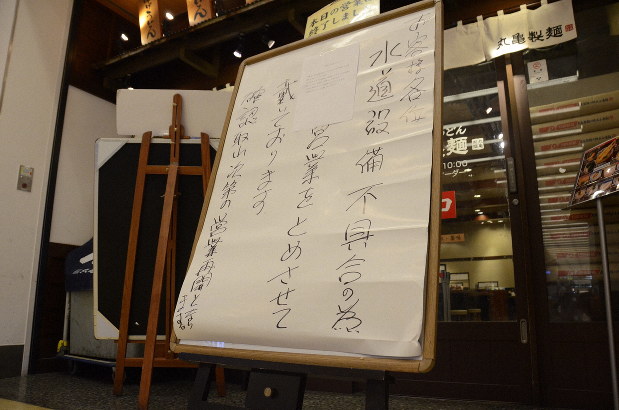 本日の営業
終了しました
お客様各位
水道設備不具合の為
営業をとめさせて
戴いております
確認取れ次第の営業再開と致
します
丸亀製麺
うどん
製麺